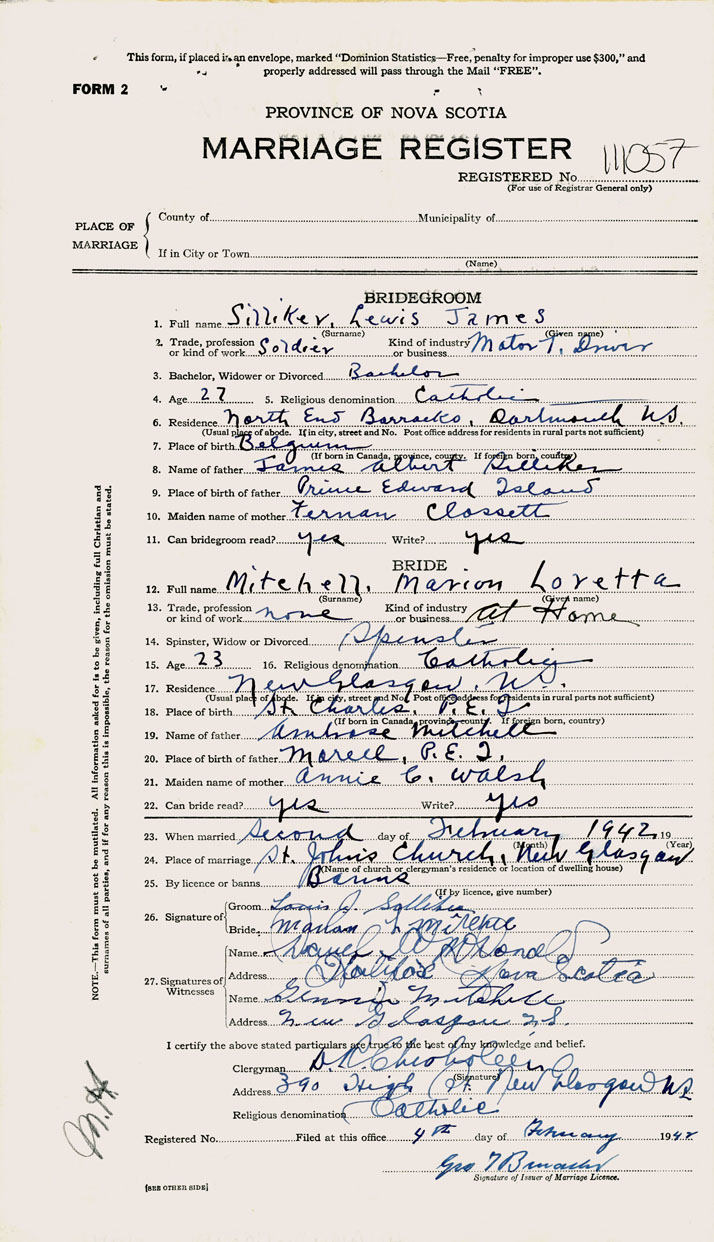 This form, if placed in an envelope, marked "Dominion Statistics—Free, penalty for improper use $300," and
properly addressed will pass through the Mail "FREE".
FORM 2
PROVINCE OF NOVA SCOTIA
MARRIAGE REGISTER
111057
REGISTERED No.
(For use of Registrar General only)
PLACE OF MARRIAGE
County of Municipality of
If in City or Town
(Name)
BRIDEGROOM
1. Full name Silliker, Lewis James
(Surname) (Given name)
2. Trade, profession or kind of work Soldier Kind of industry or business Motor T. Driver
3. Bachelor, Widower or Divorced Bachelor
4. Age 27 5. Religious denomination Catholic
6. Residence North End Barracks, Dartmouth N.S.
(Usual place of abode. If in city, street and No. Post office address for residents in rural parts not sufficient)
7. Place of birth Belgium
(If born in Canada, province, county. If foreign born, country)
8. Name of father James Albert Silliker
9. Place of birth of father Prince Edward Island
10. Maiden name of mother Fernan Clossett
11. Can bridegroom read? yes Write? yes
BRIDE
12. Full name Mitchell, Marion Loretta
(Surname) (Given name)
13. Trade, profession or kind of work none Kind of industry or business At Home
14. Spinster, Widow or Divorced Spinster
15. Age 23 16. Religious denomination Catholic
17. Residence New Glasgow, N.S.
(Usual place of abode. If in city, street and No. Post office address for residents in rural parts not sufficient)
18. Place of birth St. Charles, P.E.I
(If born in Canada, province, county. If foreign born, country)
19. Name of father Ambrose Mitchell
20. Place of birth of father Morell, P.E.I.
21. Maiden name of mother Annie C. Walsh
22. Can bride read? yes Write? yes
23. When married second day of February 1942 19
(Month) (Year)
24. Place of marriage St. Johns Church, New Glasgow
(Name of church or clergyman's residence or location of dwelling house)
25. By licence or banns Banns
(If by licence, give number)
26. Signature of
Groom Louis J. Silliker
Bride Marion L
27. Signatures of Witnesses
Name
Address Halifax Nova Scotia
Name Mitchell
Address New Glasgow N.S.
I certify the above stated particulars are true to the best of my knowledge and belief.
Clergyman
(Signature)
Address 390 High St. New Glasgow N.S.
Religious denomination Catholic
Registered No. Filed at this office 4th day of February 1942
Geo
Signature of Issuer of Marriage Licence.
[SEE OTHER SIDE]
NOTE.—This form must not be mutilated. All information asked for is to be given, including full Christian and
surnames of all parties, and if for any reason this is impossible, the reason for the omission must be stated.